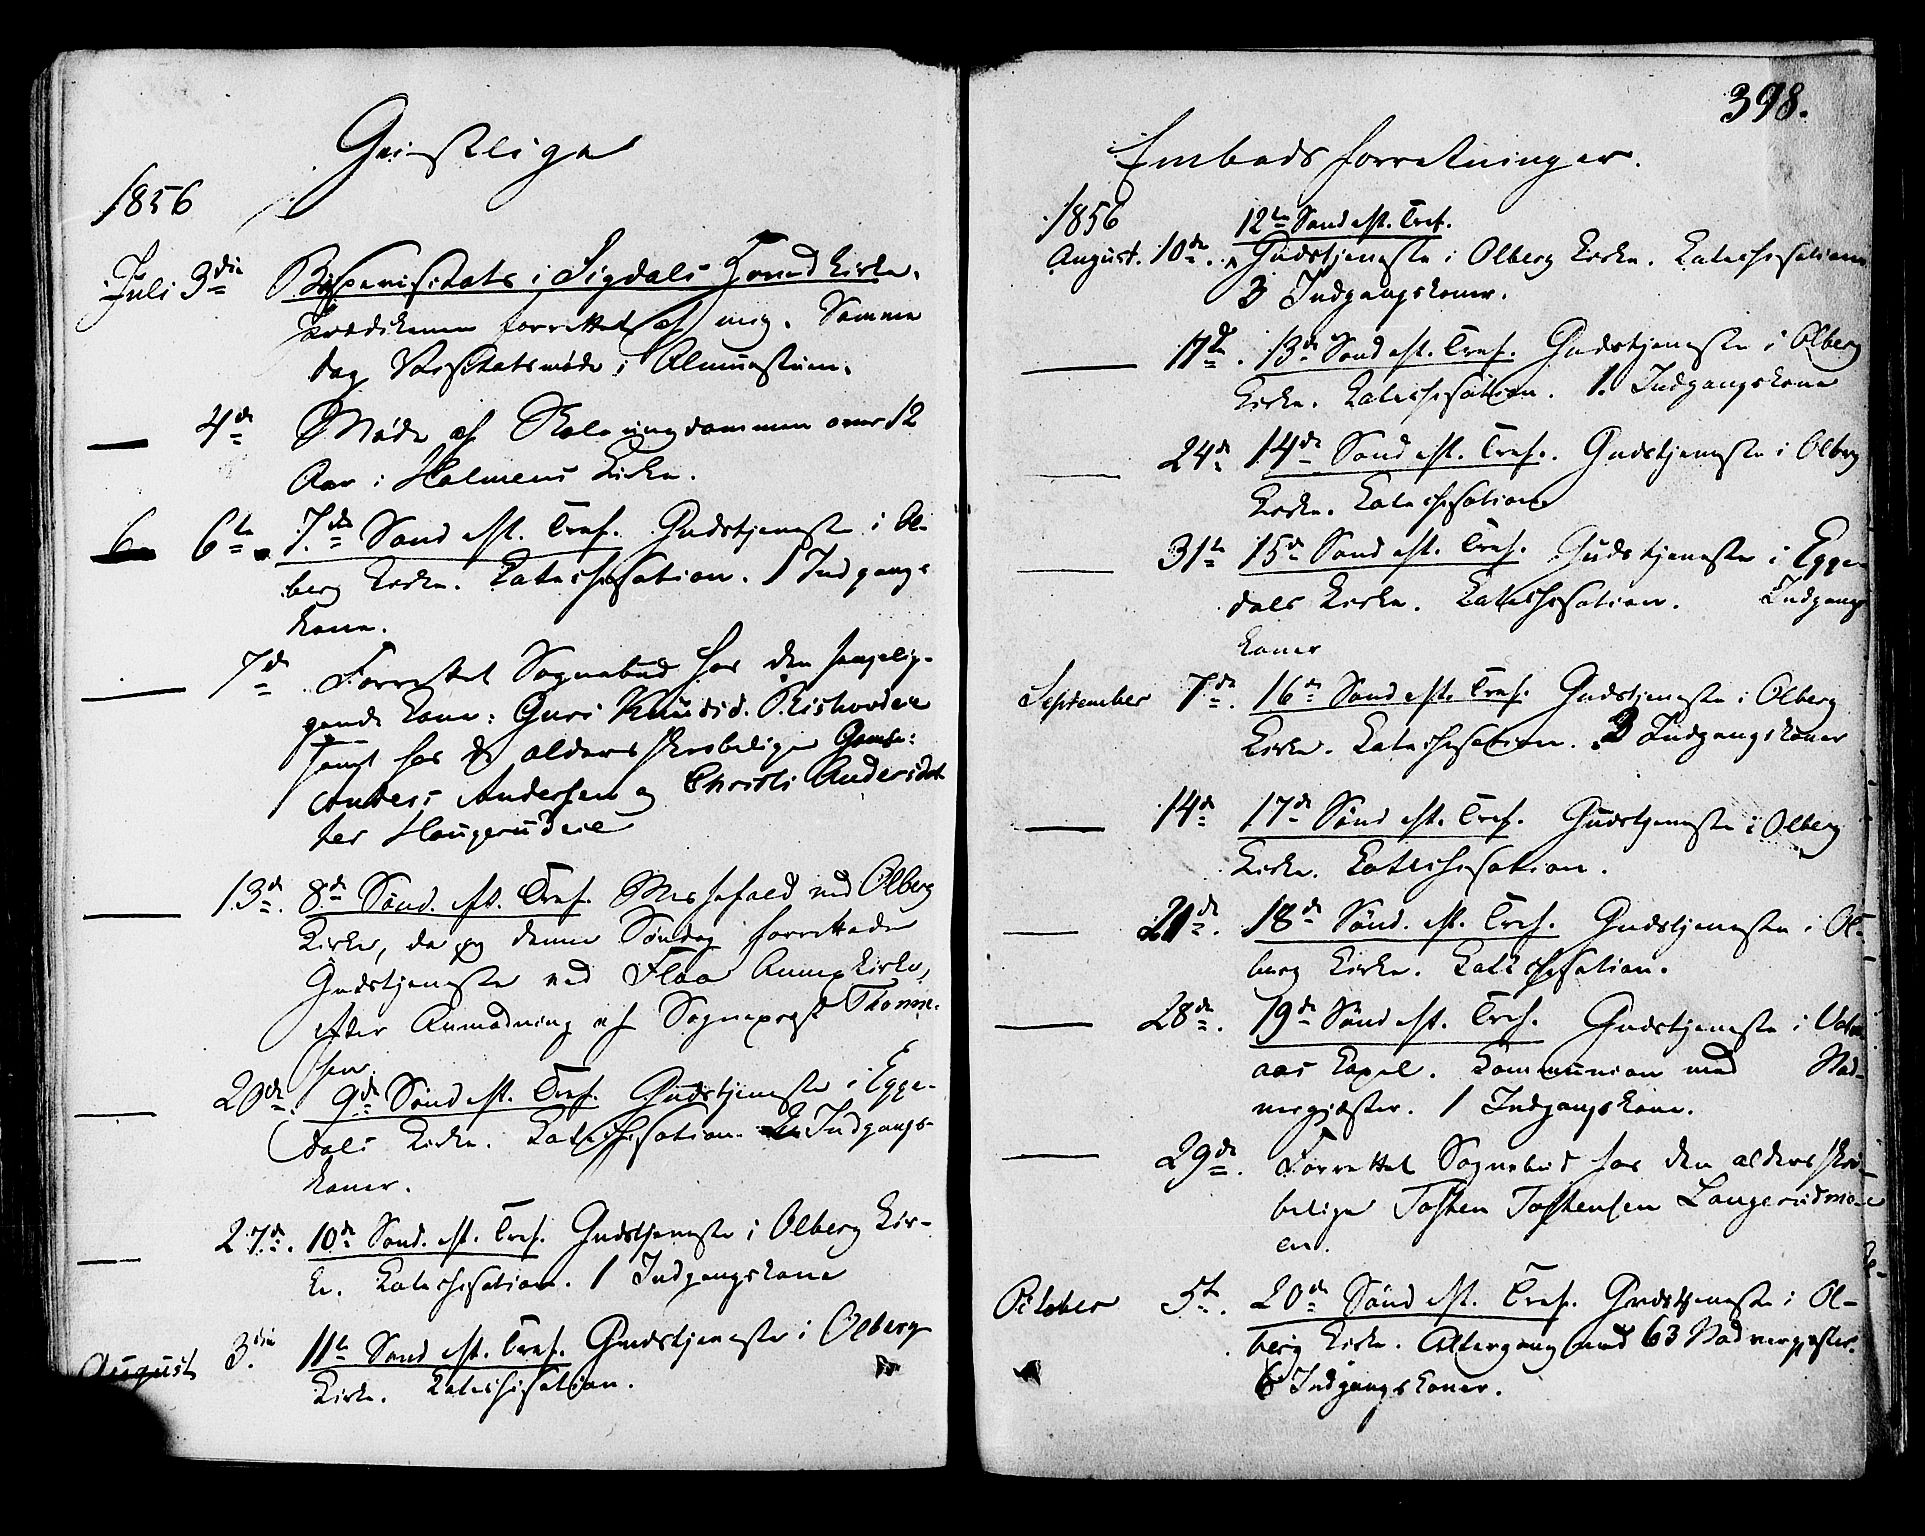 Geistlige
1856
Juli 3die Bispevisitats i Sigdals Hovedkirke.
Prædikenen forrettet af mig. Samme
dag Visitatsmøde i Almuestuen.
— 4de Møde af Skoleungdommen over 12
Aar i Holmens Kirke.
6te 7de Sønd. eft. Tref. Gudstjeneste i Ol-
berg Kirke. Katechisation. 1 Indgangs-
kone.
— 7de Forrettet Sognebud hos den sengelig-
gende Kone: Guri Knudsd.
samt hos de aldersskrøbelige
Anders Andersen og Christi Andersdat-
ter Haugerudeie
— 13de. 8de Sønd. eft. Tref. Messefald ved Olberg
Kirke, da jeg denne Søndag forrettede
Gudstjeneste ved Flaa Annexkirke,
efter Anmodning af Sognepræst Thom-
sen.
— 20de. 9de Sønd. eft. Tref. Gudstjeneste i Egge-
dals Kirke. Katechisation. Indgangs-
koner.
— 27de. 10de Sønd. eft. Tref. Gudstjeneste i Olberg Kir-
ke. Katechisation. 1 Indgangskone
August 3die 11te Sønd. eft. Tref. Gudstjeneste i Olberg
Kirke. Katechisation.
398.
Embedsforretninger.
1856 12te Sønd. eft. Tref.
August. 10de. Gudstjeneste i Olberg Kirke. Katechisation
3 Indgangskoner.
— 17de. 13de Sønd. eft. Tref. Gudstjeneste i Olberg
Kirke. Katechisation. 1. Indgangskone
— 24de 14de Sønd. eft. Tref. Gudstjeneste i Olberg
Kirke. Katechisation
— 31te 15de Sønd. eft. Tref. Gudstjeneste i Egge-
dals Kirke. Katechisation. Indgangs
koner
September 7de. 16de Sønd. eft. Tref. Gudstjeneste i Olberg
Kirke. Katechisation. 3 Indgangskoner
— 14de 17de Sønd. eft. Tref. Gudstjeneste i Olberg
Kirke. Katechisation.
— 21de. 18de Sønd. eft. Tref. Gudstjeneste i Ol-
berg Kirke. Katechisation.
— 28de. 19de Sønd. eft. Tref. Gudstjeneste i Vatn-
aas Capel. Kommunion med Nad-
vergjæster. 1 Indgangskone.
— 29de. Forrettet Sognebud hos den aldersskrø-
belige Tosten Tostensen Langerudmo-
en.
October 5te. 20de Sønd. eft. Tref. Gudstjeneste i Ol-
berg Kirke. Altergang med 63 Nadvergjæster.
6 Indgangskoner.